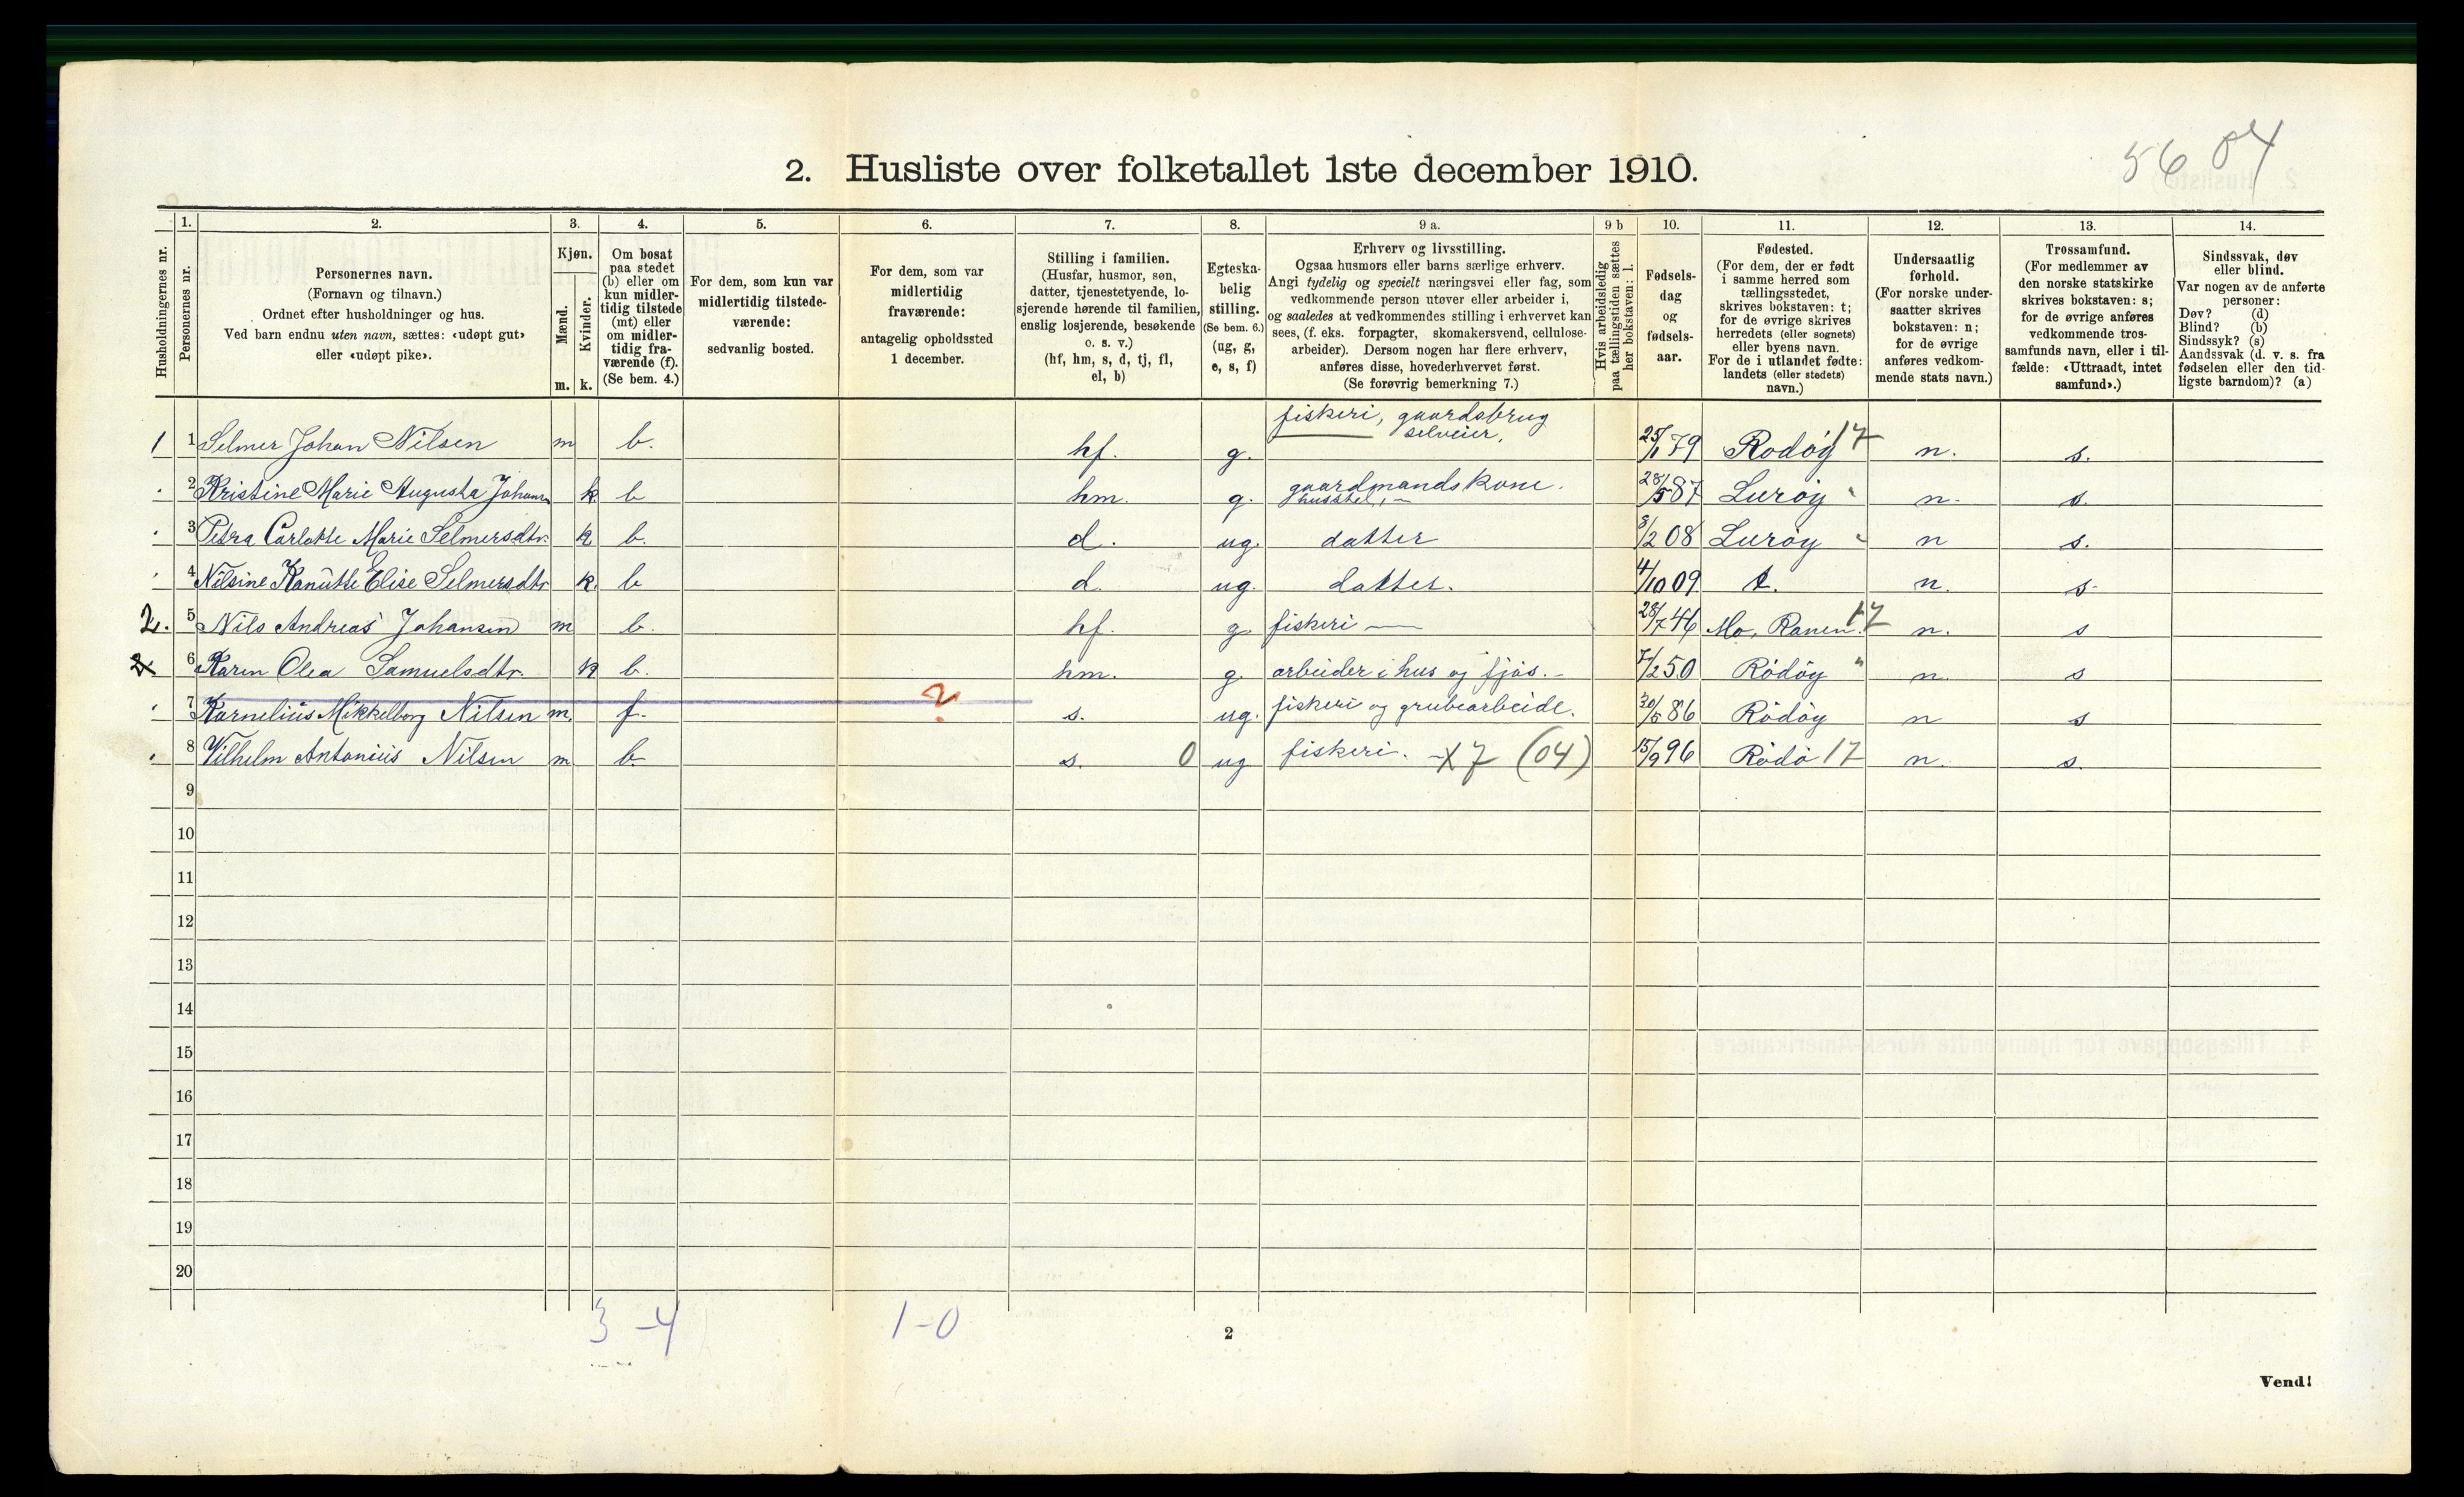 56 04
2. Husliste over folketallet 1ste december 1910.
Husholdningernes nr.
1. Personernes nr.
2. Personernes navn.
(Fornavn og tilnavn.)
Ordnet efter husholdninger og hus.
Ved barn endnu uten navn, sættes: «udøpt gut»
eller «udøpt pike».
3. Kjøn.
Mænd. m.
Kvinder. k.
4. Om bosat
paa stedet
(b) eller om
kun midler-
tidig tilstede
(mt) eller
om midler-
tidig fra-
værende (f).
(Se bem. 4.)
5. For dem, som kun var
midlertidig tilstede-
værende:
sedvanlig bosted.
6. For dem, som var
midlertidig
fraværende:
antagelig opholdssted
1 december.
7. Stilling i familien.
(Husfar, husmor, søn,
datter, tjenestetyende, lo-
sjerende hørende til familien,
enslig losjerende, besøkende
o. s. v.)
(hf, hm, s, d, tj, fl,
el, b)
8. Egteska-
belig
stilling.
(Se bem. 6.)
(ug, g,
e, s, f)
9 a. Erhverv og livsstilling.
Ogsaa husmors eller barns særlige erhverv.
Angi tydelig og specielt næringsvei eller fag, som
vedkommende person utøver eller arbeider i,
og saaledes at vedkommendes stilling i erhvervet kan
sees, (f. eks. forpagter, skomakersvend, cellulose-
arbeider). Dersom nogen har flere erhverv,
anføres disse, hovederhvervet først.
(Se forøvrig bemerkning 7.)
9 b Hvis arbeidsledig
paa tællingstiden sættes
her bokstaven: l.
10. Fødsels-
dag
og
fødsels-
aar.
11. Fødested.
(For dem, der er født
i samme herred som
tællingsstedet,
skrives bokstaven: t;
for de øvrige skrives
herredets (eller sognets)
eller byens navn.
For de i utlandet fødte:
landets (eller stedets)
navn.)
12. Undersaatlig
forhold.
(For norske under-
saatter skrives
bokstaven: n;
for de øvrige
anføres vedkom-
mende stats navn.)
13. Trossamfund.
(For medlemmer av
den norske statskirke
skrives bokstaven: s;
for de øvrige anføres
vedkommende tros-
samfunds navn, eller i til-
fælde: «Uttraadt, intet
samfund».)
14. Sindssvak, døv
eller blind.
Var nogen av de anførte
personer:
Døv? (d)
Blind? (b)
Sindssyk? (s)
Aandssvak (d. v. s. fra
fødselen eller den tid-
ligste barndom)? (a)
1 1 Selmer Johan Nilsen m b. hf. g. fiskeri, gaardsbrug selveier. 25/1 79 Rødøy 17 n. s.
2 Kristine Marie Augusta Johans k b hm. g. gaardmandskone. husstel, 28/5 87 Lurøy n. s
3 Petra Carlotte Marie Selmersdtr. k b. d. ug. datter 8/2 08 Lurøy n s.
4 Nilsine Kanutte Elise Selmersdtr k. b d. ug. datter. 4/10 09 t. n. s.
2. 5 Nils Andreas Johansen m b. hf. g fiskeri 28/7 46 Mo, Ranen. 17 n. s
2 6 Karen Olea Samuelsdtr. k b. hm. g. arbeider i hus og fjøs. 7/2 50 Rødøy " n. s
7 Kornelius Mikkelborg Nilsen m. f. ? s. ug. fiskeri og grubearbeide. 30/5 86 Rødøy n s
8 Vilhelm Antonius Nilsen m b s. 0 ug fiskeri. X7 (04) 15/9 96 Rødø 17 n. s.
9
10
11
12
13
14
15
16
17
18
19
20
3-4 1-0
2
Vend!